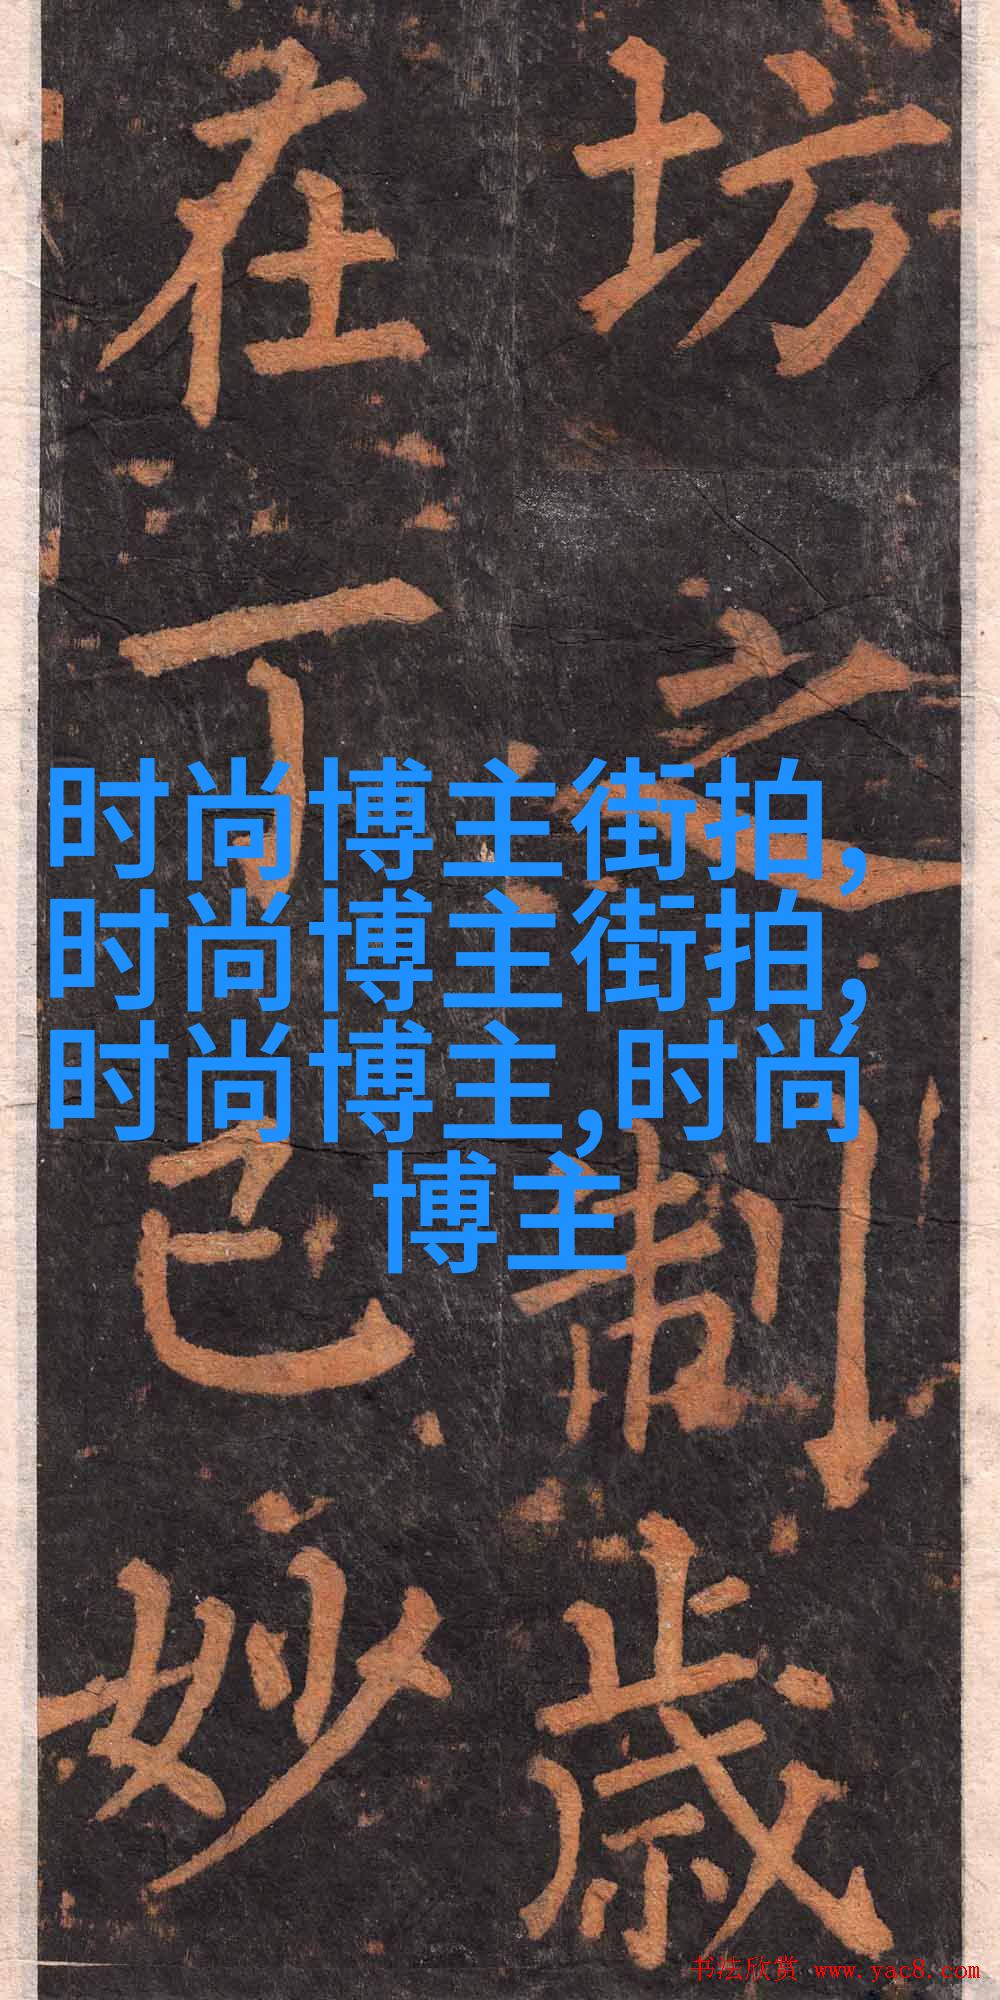 坊之制歲
在丁巳妙
时尚博主街拍,
时尚博主街拍,
时尚博主,时尚
博主
书法欣赏 www.yac8.com